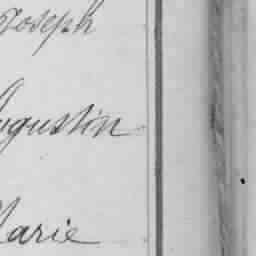 Joseph
Augustin
Marie